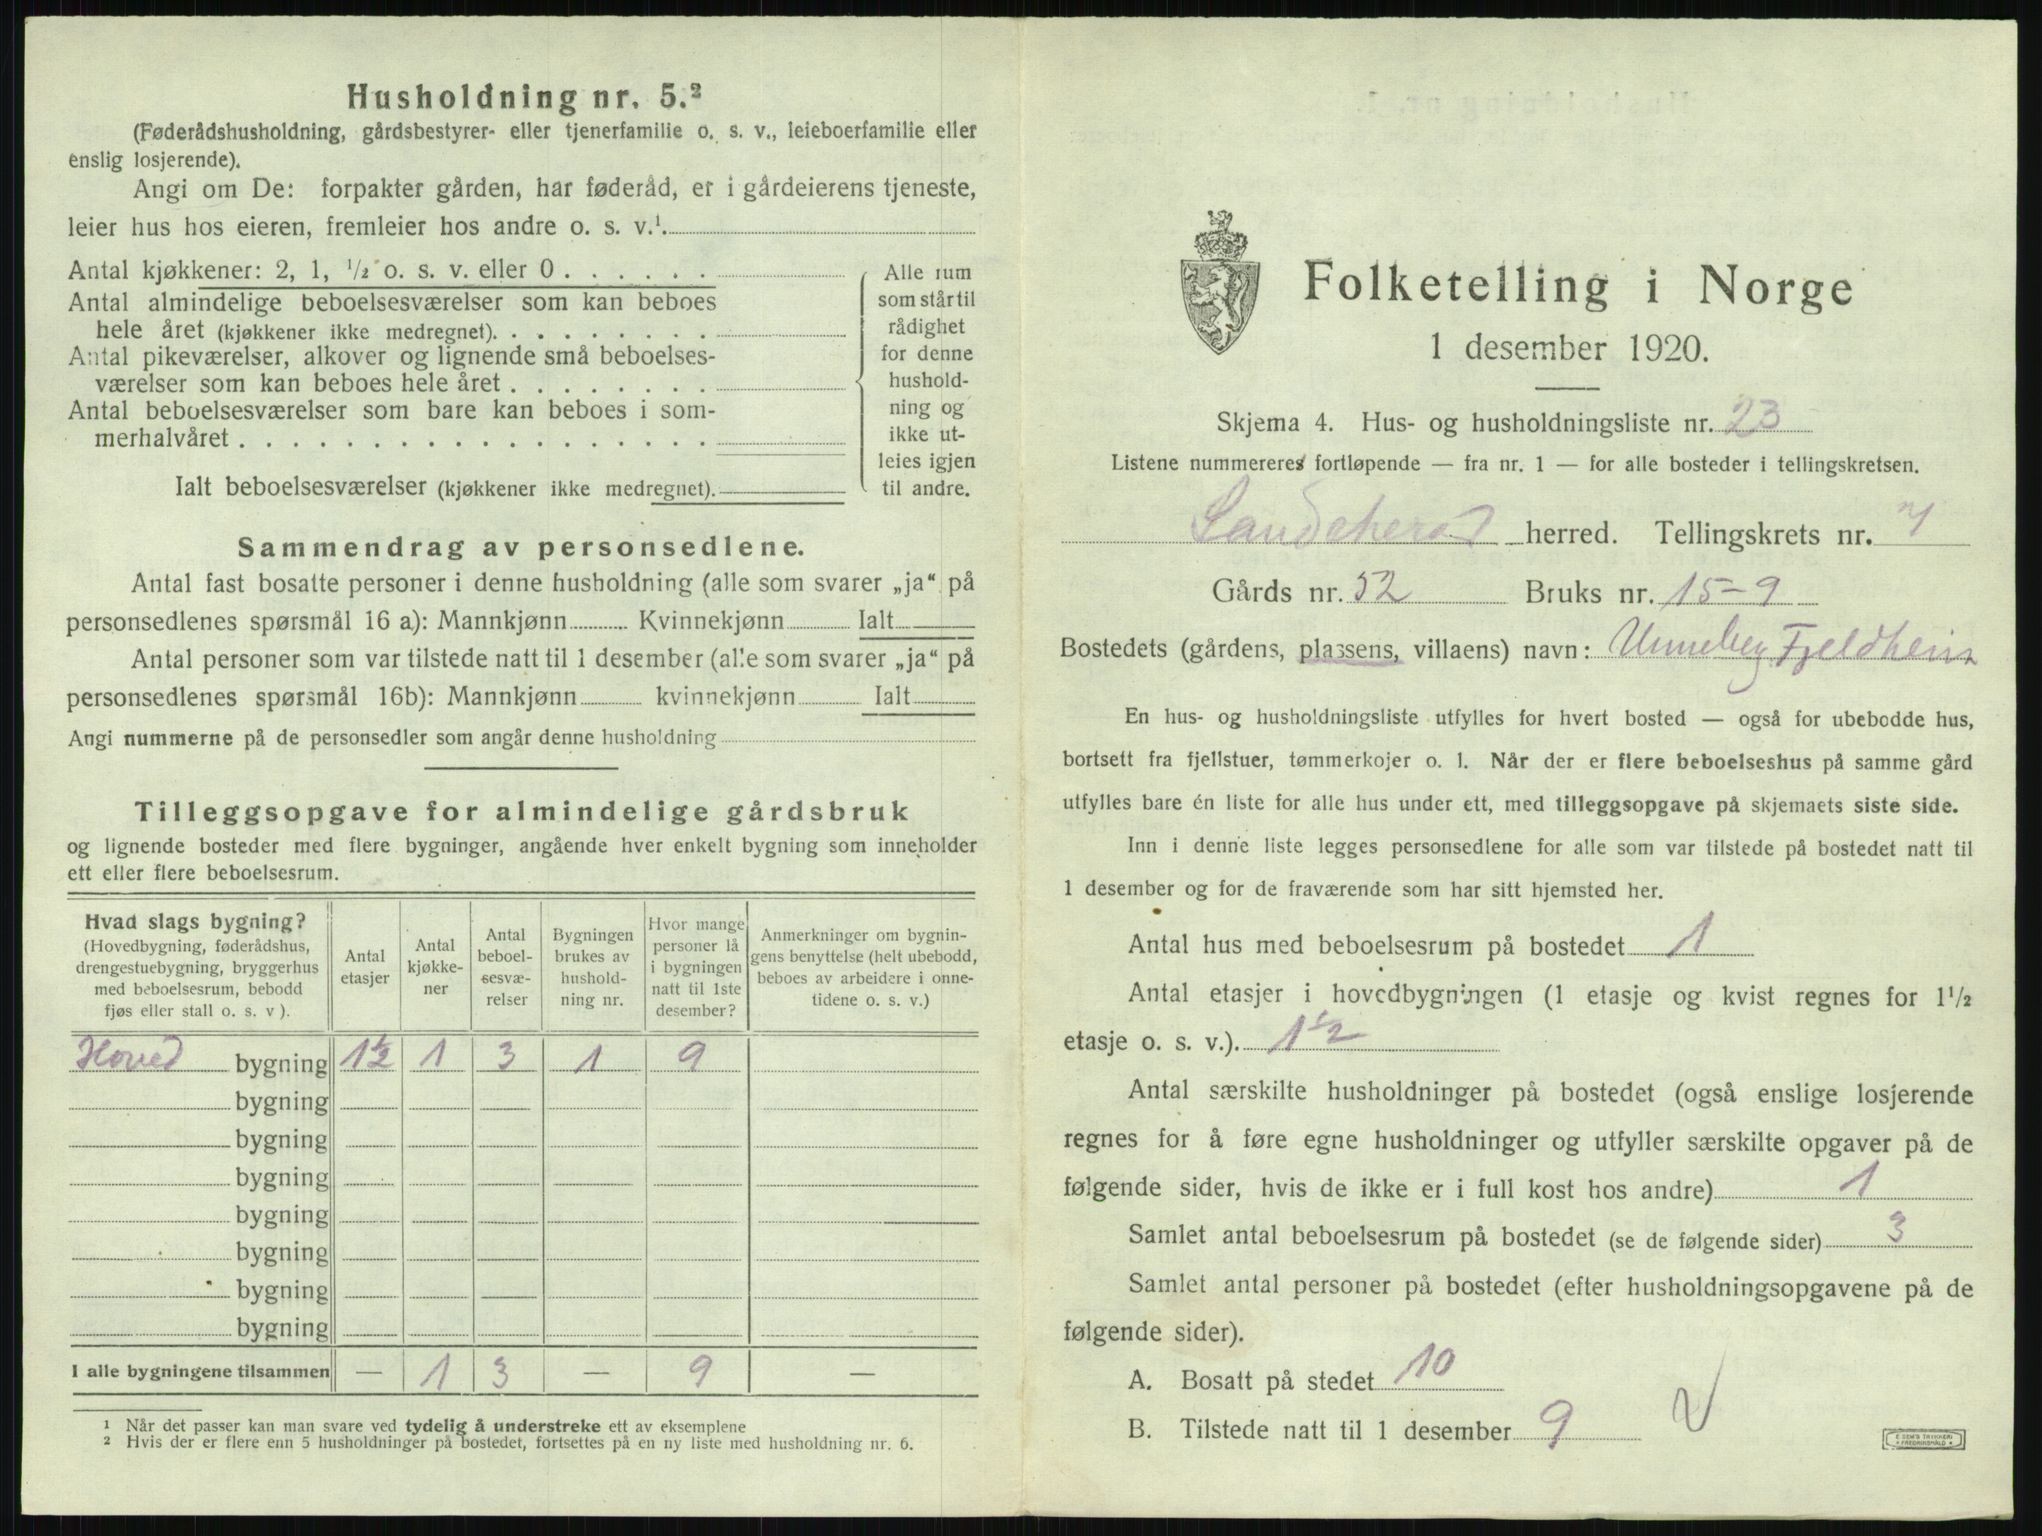 Husholdning nr. 5.²
(Føderådshusholdning, gårdsbestyrer- eller tjenerfamilie o. s. v., leieboerfamilie eller
enslig losjerende).
Angi om De: forpakter gården, har føderåd, er i gårdeierens tjeneste,
leier hus hos eieren, fremleier hos andre o. s. v.¹
Antal kjøkkener: 2, 1, ¹/₂ o. s. v. eller 0 . . . . . .
Antal almindelige beboelsesværelser som kan beboes
hele året (kjøkkener ikke medregnet). . . . . . . . .
Antal pikeværelser, alkover og lignende små beboelses-
værelser som kan beboes hele året . . . . . . . .
Antal beboelsesværelser som bare kan beboes i som-
merhalvåret . . . . . . . . . . . . . . . . . .
Ialt beboelsesværelser (kjøkkener ikke medregnet).
Alle rum
som står til
rådighet
for denne
hushold-
ning og
ikke ut-
leies igjen
til andre.
Sammendrag av personsedlene.
Antal fast bosatte personer i denne husholdning (alle som svarer „ja“ på
personsedlenes spørsmål 16 a): Mannkjønn Kvinnekjønn Ialt
Antal personer som var tilstede natt til 1 desember (alle som svarer „ja“ på
personsedlenes spørsmål 16b): Mannkjønn kvinnekjønn Ialt
Angi nummerne på de personsedler som angår denne husholdning
Tilleggsopgave for almindelige gårdsbruk
og lignende bosteder med flere bygninger, angående hver enkelt bygning som inneholder
ett eller flere beboelsesrum.
Hvad slags bygning?
(Hovedbygning, føderådshus,
drengestuebygning, bryggerhus
med beboelsesrum, bebodd
fjøs eller stall o. s. v ).
Antal
etasjer
Antal
kjøkke-
ner
Antal
beboel-
sesvæ-
relser
Bygningen
brukes av
hushold-
ning nr.
Hvor mange
personer lå
i bygningen
natt til 1ste
desember?
Anmerkninger om bygnin-
gens benyttelse (helt ubebodd,
beboes av arbeidere i onne-
tidene o. s. v.)
Hoved bygning 1½ 1 3 1 9
bygning
bygning
bygning
bygning
bygning
bygning
bygning
I alle bygningene tilsammen — 1 3 — 9 —
¹ Når det passer kan man svare ved tydelig å understreke ett av eksemplene
² Hvis der er flere enn 5 husholdninger på bostedet, fortsettes på en ny liste med husholdning nr. 6.
Folketelling i Norge
1 desember 1920.
Skjema 4. Hus- og husholdningsliste nr. 23
Listene nummereres fortløpende — fra nr. 1 — for alle bosteder i tellingskretsen.
Sandeherad herred. Tellingskrets nr. 7
Gårds nr. 52 Bruks nr. 15-9
Bostedets (gårdens, plassens, villaens) navn: Unneberg Fjeldheim
En hus- og husholdningsliste utfylles for hvert bosted — også for ubebodde hus,
bortsett fra fjellstuer, tømmerkojer o. l. Når der er flere beboelseshus på samme gård
utfylles bare én liste for alle hus under ett, med tilleggsopgave på skjemaets siste side.
Inn i denne liste legges personsedlene for alle som var tilstede på bostedet natt til
1 desember og for de fraværende som har sitt hjemsted her.
Antal hus med beboelsesrum på bostedet 1
Antal etasjer i hovedbygningen (1 etasje og kvist regnes for 1¹/₂
etasje o. s. v.). 1½
Antal særskilte husholdninger på bostedet (også enslige losjerende
regnes for å føre egne husholdninger og utfyller særskilte opgaver på de
følgende sider, hvis de ikke er i full kost hos andre) 1
Samlet antal beboelsesrum på bostedet (se de følgende sider) 3
Samlet antal personer på bostedet (efter husholdningsopgavene på de
følgende sider).
A. Bosatt på stedet 10
B. Tilstede natt til 1 desember 9
E SEM'S TRYKKERI
FREDRIKSHALD